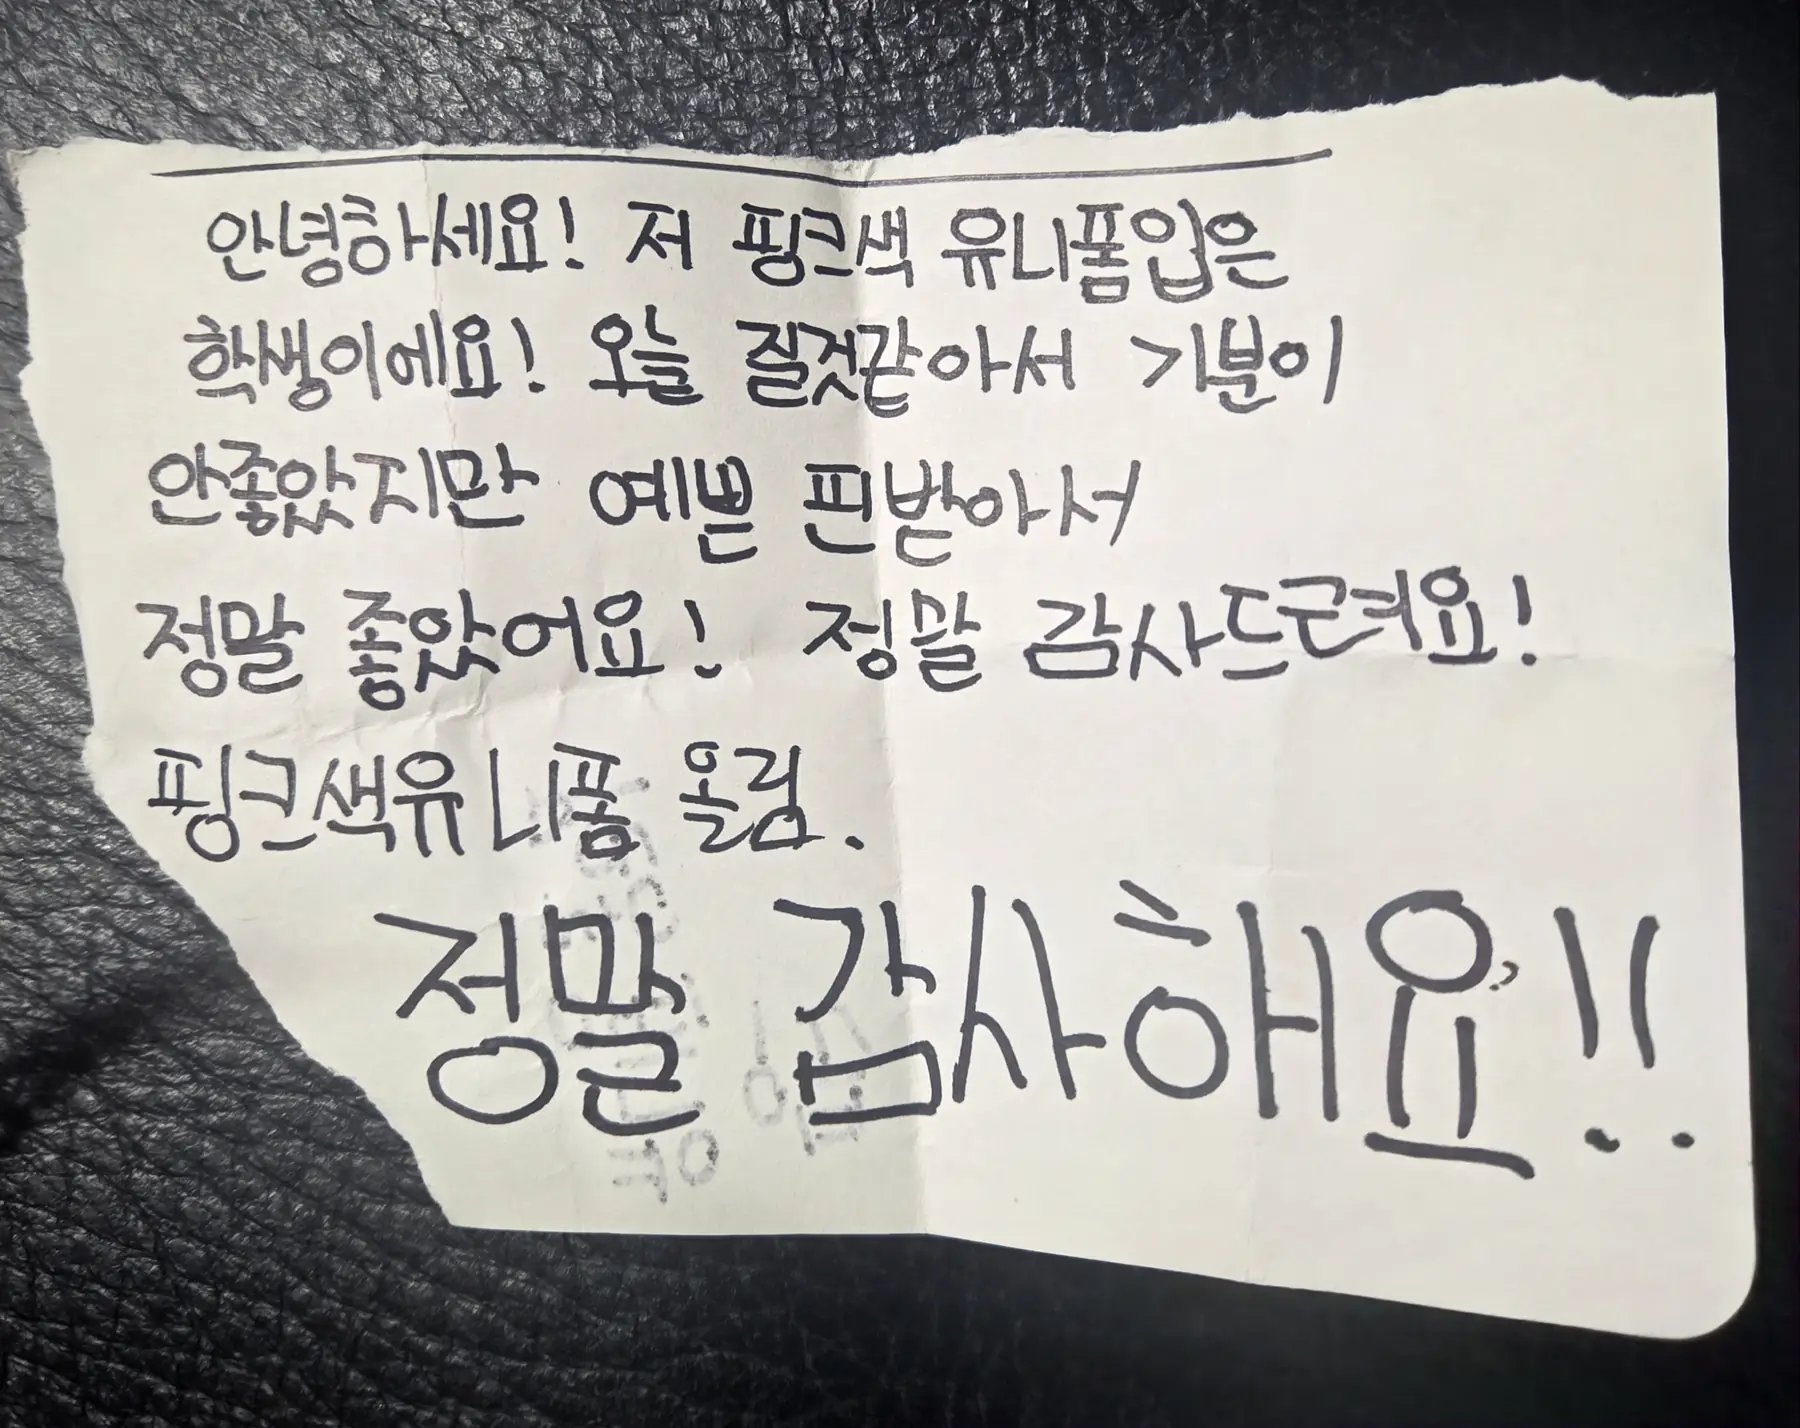 안녕하세요! 저 핑크색 유니폼입은
학생이에요! 오늘 질것같아서 기분이
안좋았지만 예쁜 핀받아서
정말 좋았어요! 정말 감사드려요!
핑크색유니폼 올림.
정말 감사해요!!